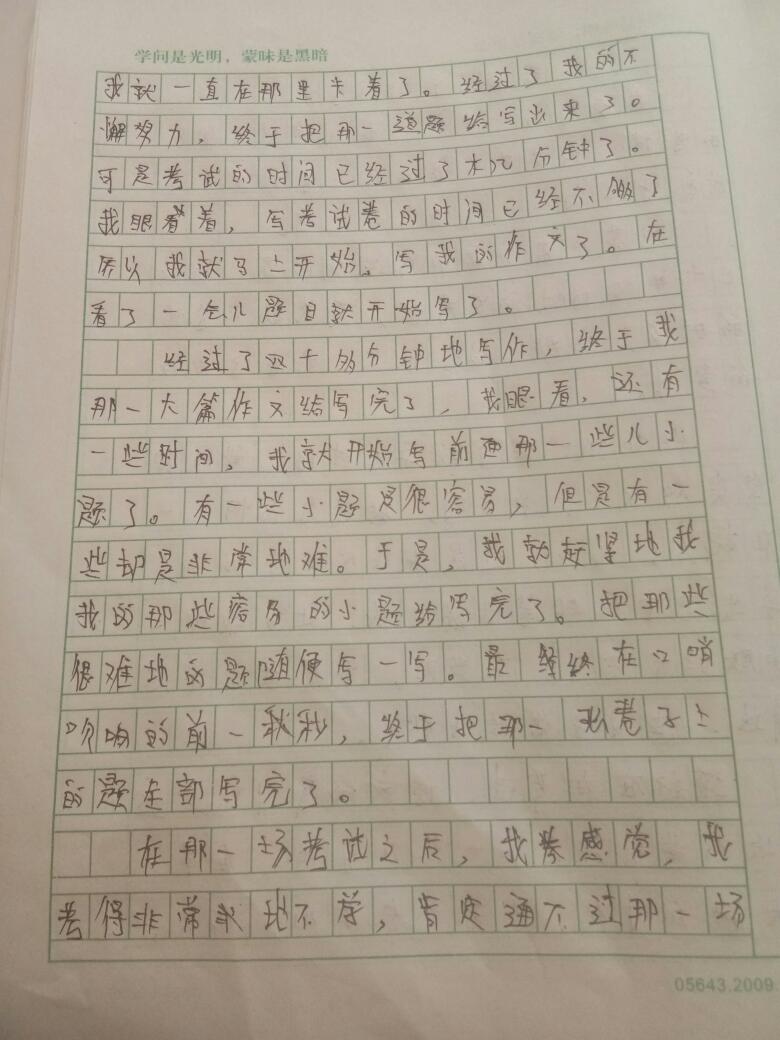 学问是光明，蒙昧是黑暗
我就一直在那里卡着了。经过了我的不
懈努力，终于把那一道题给写出来了。
可是考试的时间已经过了大况分钟了。
我眼看着，写考试卷的时间已经不够了
所以我就马上开始，写我的作文了。在
看了一会儿题目就开始写了。
经过了四十多分钟地写作，终于我
那一大篇作文给写完了，我眼看，还有
一些时间，我就开始写前面那一些儿小
题了。有一些小题是很容易，但是有一
些却是非常地难。于是，我就赶紧地我
我的那些容易的小题给写完了。把那些
很难地的题随便写一写。最终在口哨
吹响的前一秒，终于把那一张卷子上
的题全部写完了。
在那一场考试之后，我感觉，我
考得非常地不学，肯定通不过那一场
05643.2009.